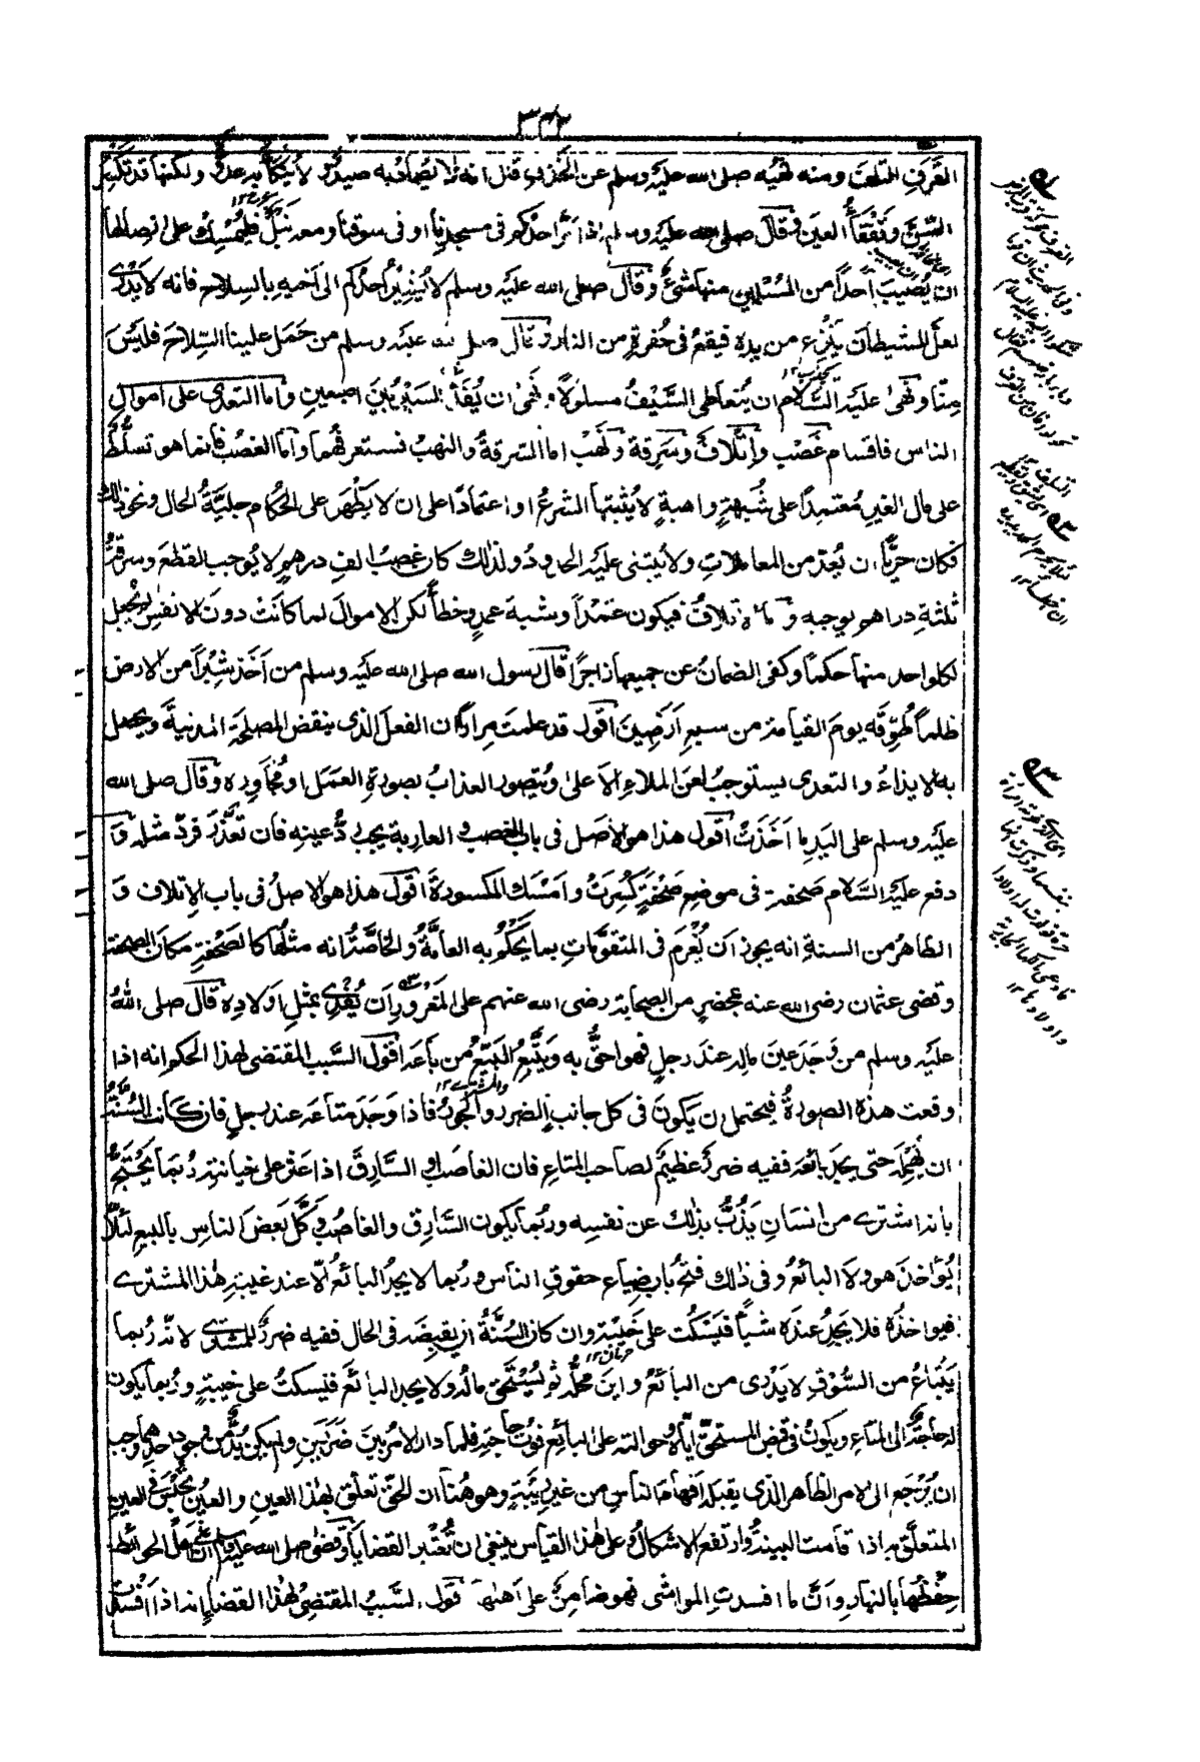 ٣٤٢
القرفِ التلفَ ومنه نهيُه صلى الله عليه وسلم عن الخذفِ قال انه لا يُصادُ به صيدٌ ولا يُنكَأُ به عدوٌّ ولكنها قد تكسِرُ
السِّنَّ وتَفْقَأُ العينَ وقال صلى الله عليه وسلم اذا مَرَّ احدُكم فى مسجدِنا او فى سوقنا ومعه نَبْلٌ فليُمْسِكْ على نِصالها
ان يُصيبَ احداً من المُسْلمين منها شَىْءٌ وقال صلى الله عليه وسلم لا يُشِيْرُ أحدُكم الى أخيه بالسِلاح فانه لا يَدْرِى
لعلَّ الشيطانَ يَنْزِعُ من يدِه فيقعُ فى حُفرةٍ من النار وقال صلى الله عليه وسلم من حَمَل علينا السِّلاحَ فليْسَ
مِنَّا ونَهىٰ عليه السَّلام ان يُتعاطى السَّيْفُ مسلولًا ونَهىٰ ان يُقَدَّ السَيْرُ بَيْنَ اصبعينِ واما التعدى على اموالِ
الناس فاقسام غَصْب وإتْلافٌ وسَرِقة ونَهْب اما السرقةُ والنهبُ فستعرفُهما واما الغصبُ فانما هو تسلُّطٌ
على مال الغيرِ مُعتمِداً على شُبهةٍ واهيةٍ لا يُثبِتُها الشرعُ او اعتمادًا على ان لا يَظْهَرَ على الحُكام جليّةُ الحال ونحوِ ذلك
فكان حرِيًّا ان يُعدّ من المعاملاتِ ولا يُبتنى عليه الحدودُ ولذلك كان غصبُ الفِ درهمٍ لا يُوجب القطعَ وسرقةُ
ثلثةِ دراهم يوجبه واما الاتلافُ فيكون عَمْداً وشبهَ عمدٍ وخطأً لكن الاموالَ لما كانَتْ دونَ الانفسِ لم يُجعل
لكل واحد منها حكماً وكفى الضمانُ عن جميعها زاجراً قال رسول الله صلى الله عليه وسلم من أخَذ شِبْراً من الارض
ظلماً طُوِّقَه يومَ القيامة من سبعِ أرَضِينَ اقول قد علمتَ مِراراً ان الفعلَ الذى ينقض المصلحةَ المدنيةَ ويحصل
به الايذاءُ والتعدى يستوجبُ لعنَ الملاءِ الاَعلىٰ ويُتصورُ العذابُ بصورةِ العَمَلِ او مُجاوِرِه وقال صلى الله
عليه وسلم على اليَدِ ما أخَذَتْ اقول هذا هو الاصل فى باب الغصب والعارية يجب ردُّ عينِهِ فان تعذَّرَ فردّ مثلِه وَ
دفع عليه السَّلام صَحفةً فى موضعِ صَحْفةٍ كُسِرَتْ وأمْسَك المكسورةَ اقول هذا هو الاصلُ فى باب الإتلاف وَ
الظاهرُ من السنةِ انه يجوز ان يُغْرَم فى المتقوَّمات بما يَحْكُمُ به العامَّةُ والخاصَّةُ انه مثلُها كالصَحْفةِ مكانَ الصحفة
وقضى عثمان رضى الله عنه بمحضرٍ من الصحابة رضى الله عنهم على المَغْرُورِ ان يُفْدِىَ بمثلِ اولادِهِ قال صلى اللهُ
عليه وسلم من وَجَدَ عينَ مالِه عندَ رجلٍ فهو احقُّ به ويَتَّبِعُ البَيِّعُ من باعَه اقول السَّبب المقتضى لهذا الحكم انه اذا
وقعت هذه الصورةُ فيحتمل ان يكونَ فى كل جانبٍ الضررُ والجورُ فاذا وَجَدَ متاعَه عند رجلٍ فان كانت السُّنَّةُ
ان يُمْهِلَه حتى يجدَ بائعَه ففيه ضررٌ عظيمٌ لصاحب المتاعِ فان الغاصبَ او السَّارقَ اذا عثر على خيانتِهِ رُبَما يَحْتَجُّ
بانه اشترى من انسانٍ يَذُبُّ بذلك عن نفسِه وربَّما يكون السَّارق والغاصبُ وكَّلَ بعضَ الناسِ بالبيعِ لئلَّا
يُؤاخَذَ هو ولا البائعُ وفى ذٰلك فتحُ بابِ ضياع حقوقِ الناس ورُبما لا يجدُ البائعَ الّا عند غيبةِ هذا المشترى
فيواخذُه فلا يَجِدُ عندَه شيأً فيَسْكُت على خَيبةٍ وان كانت السُّنَّةُ ان يقبضَه فى الحال ففيه ضررٌ للمشترى لانّه رُبما
يَبْتاعُ من السُّوقِ لا يَدْرِى من البائعُ واينَ محلُّه ثم يُسْتَحَقّ مالُه ولا يجد البائعَ فيسكتُ على خيبةٍ ورُبَما يكون
له حاجةٌ الى المتاعِ ويكونُ فى قبض المستحِقّ ايّاه وحوالته على البائعِ فوتُ حاجتِه فلما دار الامرُ بينَ ضررَيْنِ ولم يكن بُدٌّ من وجود احدِهما وجب
ان يُرْجَع الى الامر الظاهرِ الذى يقبله افهامُ الناسِ من غير رِيْبةٍ وهو هُنا ان الحقَّ تعلّق بهٰذا العينِ والعينُ تُحْبَسُ فى العينِ
المتعلَّقِ به اذا قامت البينةُ وارتفع الاشكالُ وعلى هٰذا القياس ينبغى ان تُعْتَبر القضايا وقضىٰ صلى الله عليه وسلم ان على اهلِ الحوائطِ
حِفْظَها بالنهارِ وأنَّ ما افسدتِ المواشى فهو ضامِنٌ على اهلها اقول السَّببُ المقتضِى لهٰذا القضاءِ انه اذا افسدت